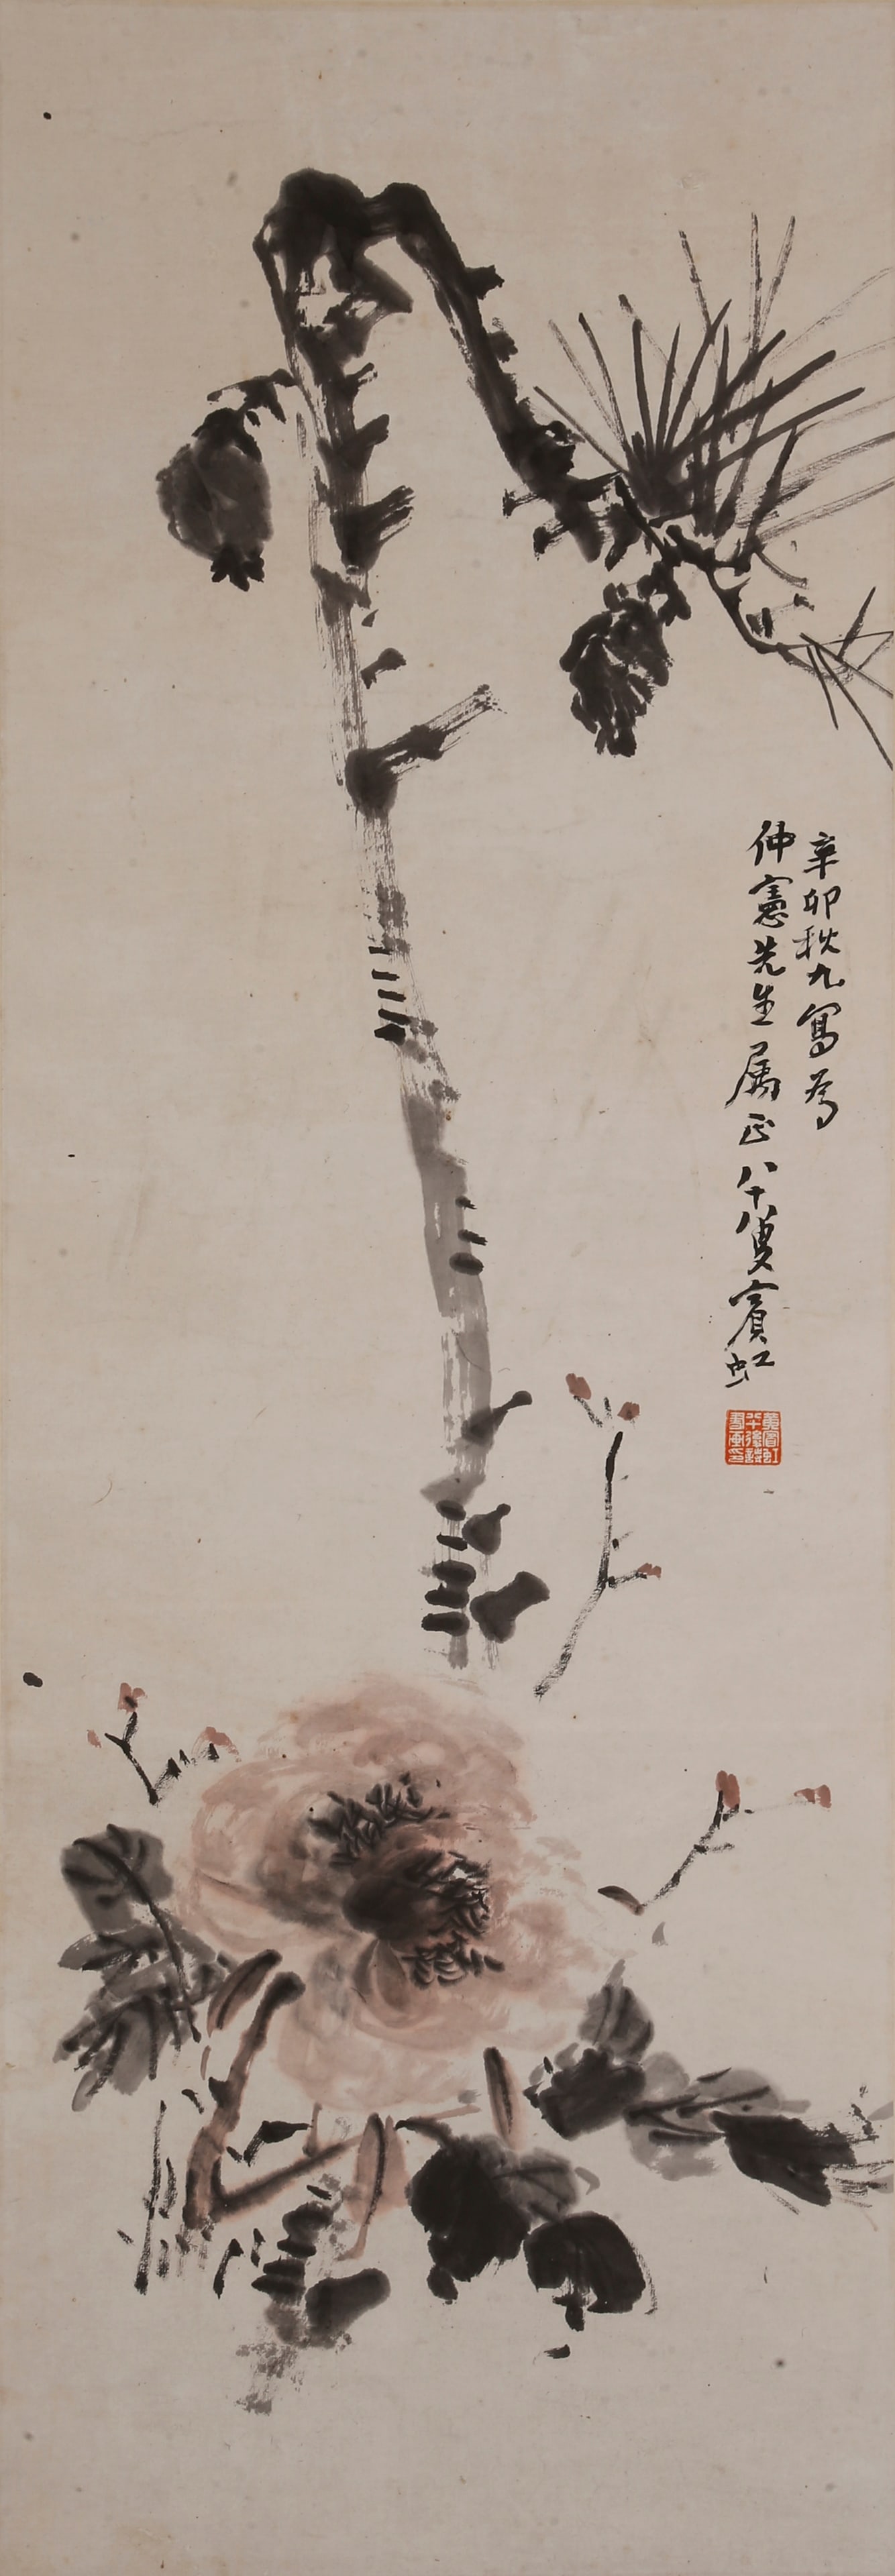 辛卯秋九寫為
仲憲先生屬正八十叟賓虹